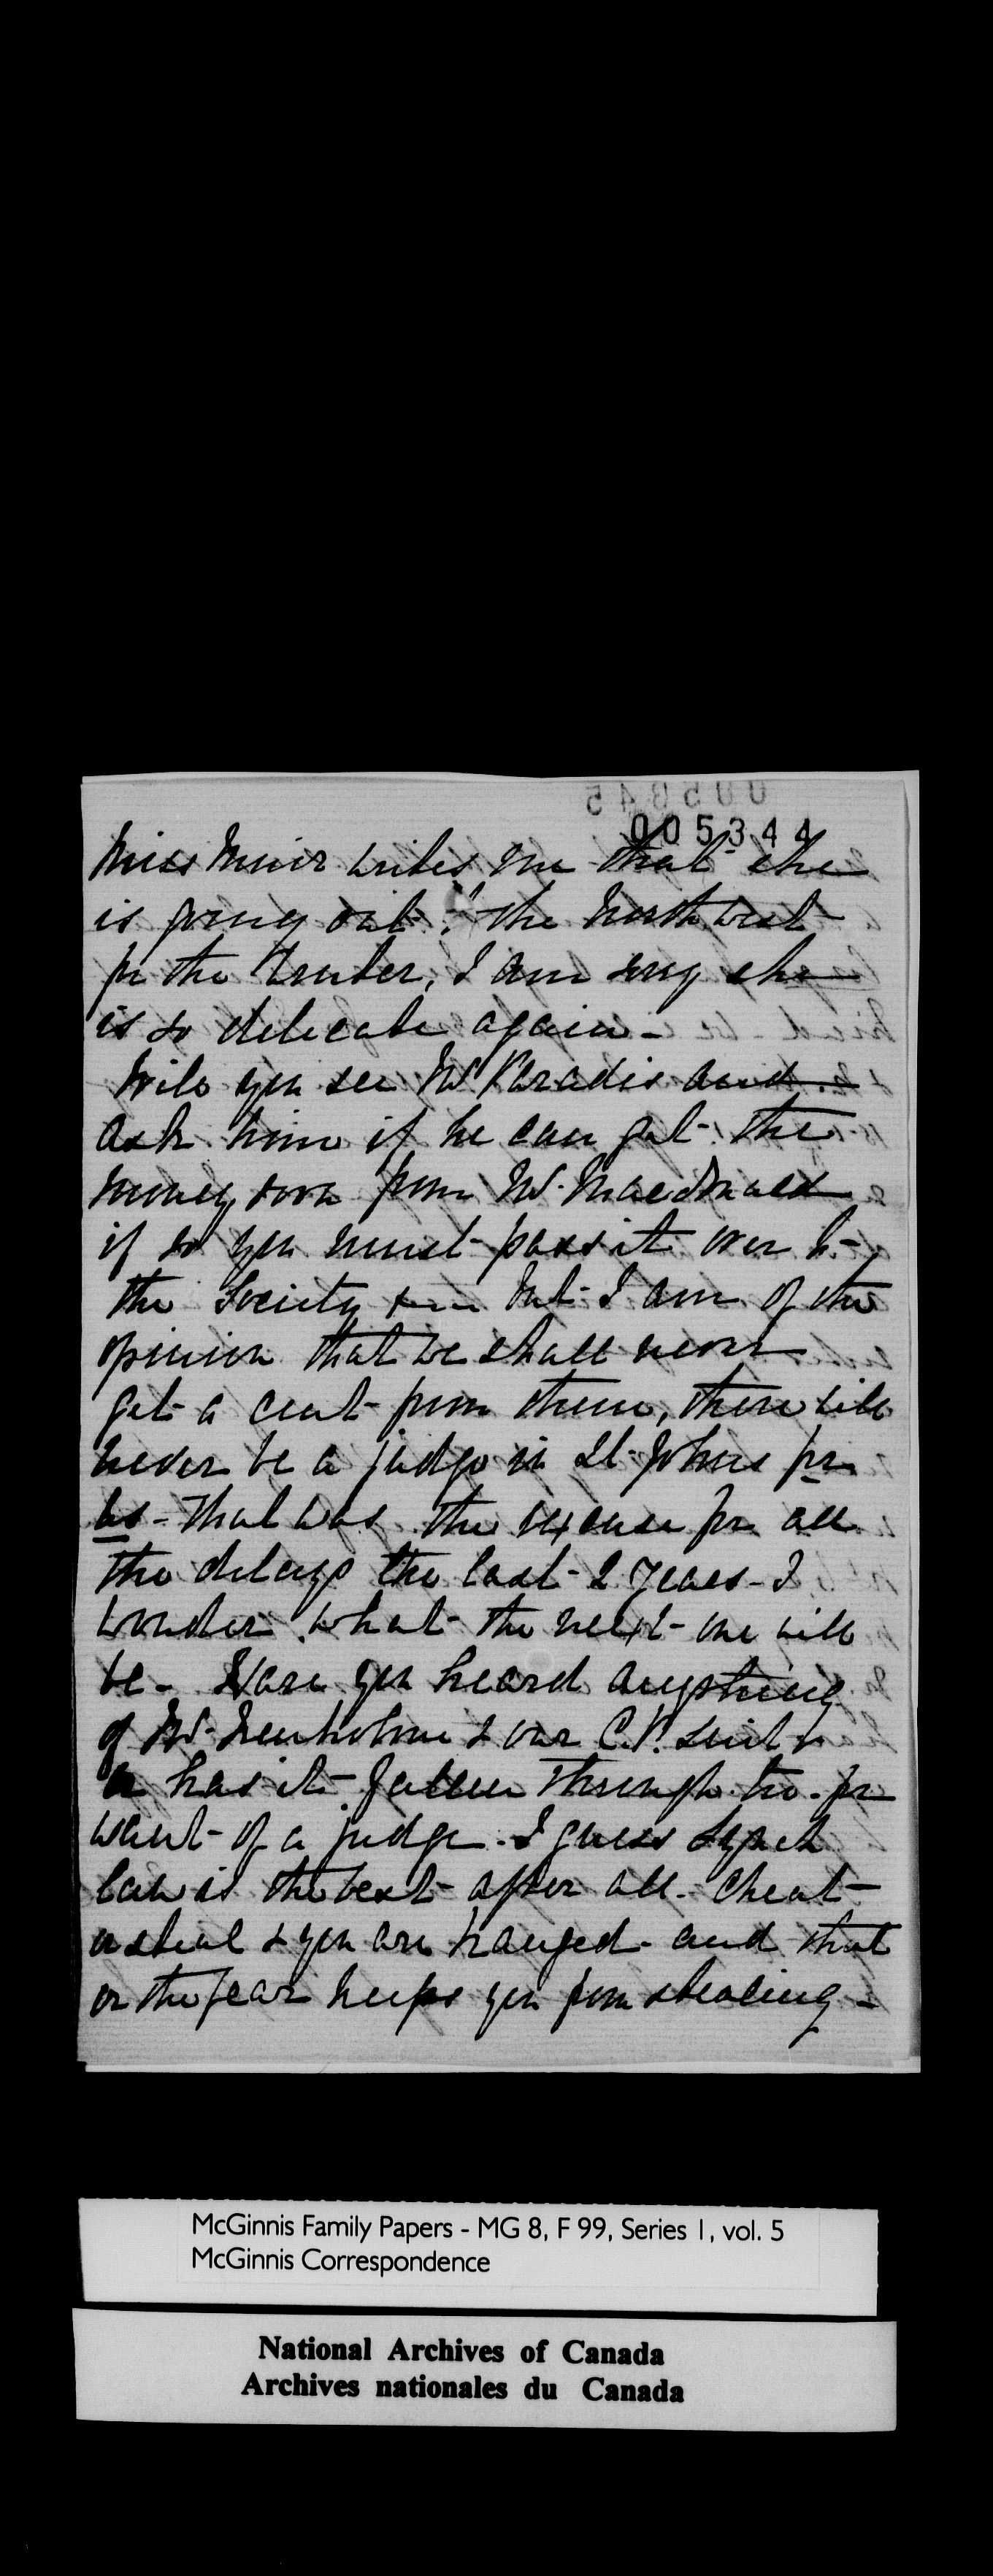 005345
005344
Miss Muir writes me that she
is going out to the North West
for the Winter, I am sorry she
is so delicate again -
Will you see Mr Paradis and
ask him if he can get the
money soon from Mr. MacDonald
if so you must pass it over to
the Society but I am of the
opinion that we shall never
get a cent from them, there will
never be a judge in St Johns for
us - that was the excuse for all
the delays the last 2 years - I
wonder what the next one will
be - Have you heard anything
of Mr. Trenholme & our C.V. suit
or has it fallen through too for
want of a judge. I guess Lynch
law is the best after all. Cheat
or steal & you are hanged - and that
or the fear keeps you from stealing -
McGinnis Family Papers - MG 8, F 99, Series 1, vol. 5
McGinnis Correspondence
National Archives of Canada
Archives nationales du Canada